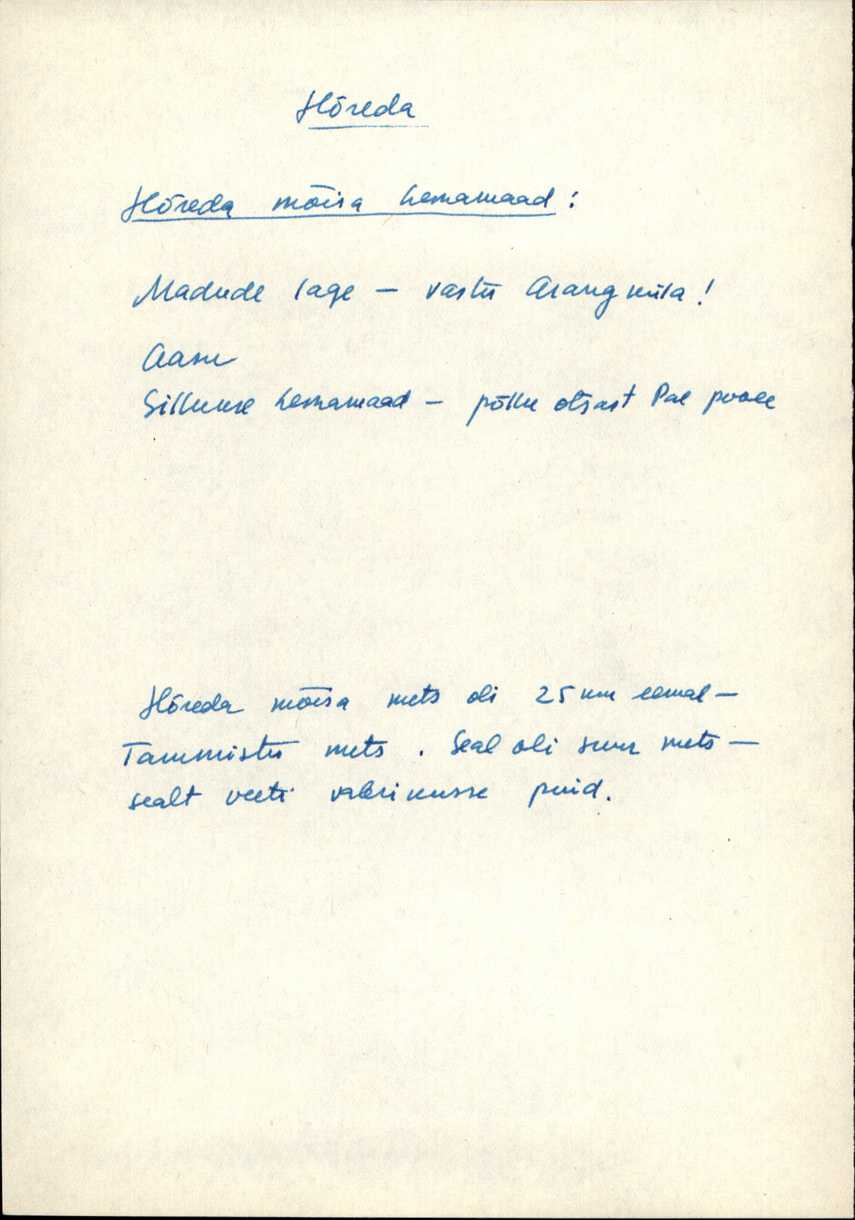 Hõreda
Hõreda mõisa heinamaad :
Madude lage – vastu Arangküla!
Aasu
heinamaad – põllu otsast Pae poole
Hõreda mõisa mets oli 25 km eemal –
Tammistu mets . Seal oli suur mets –
sealt veeti vabrikusse puid.